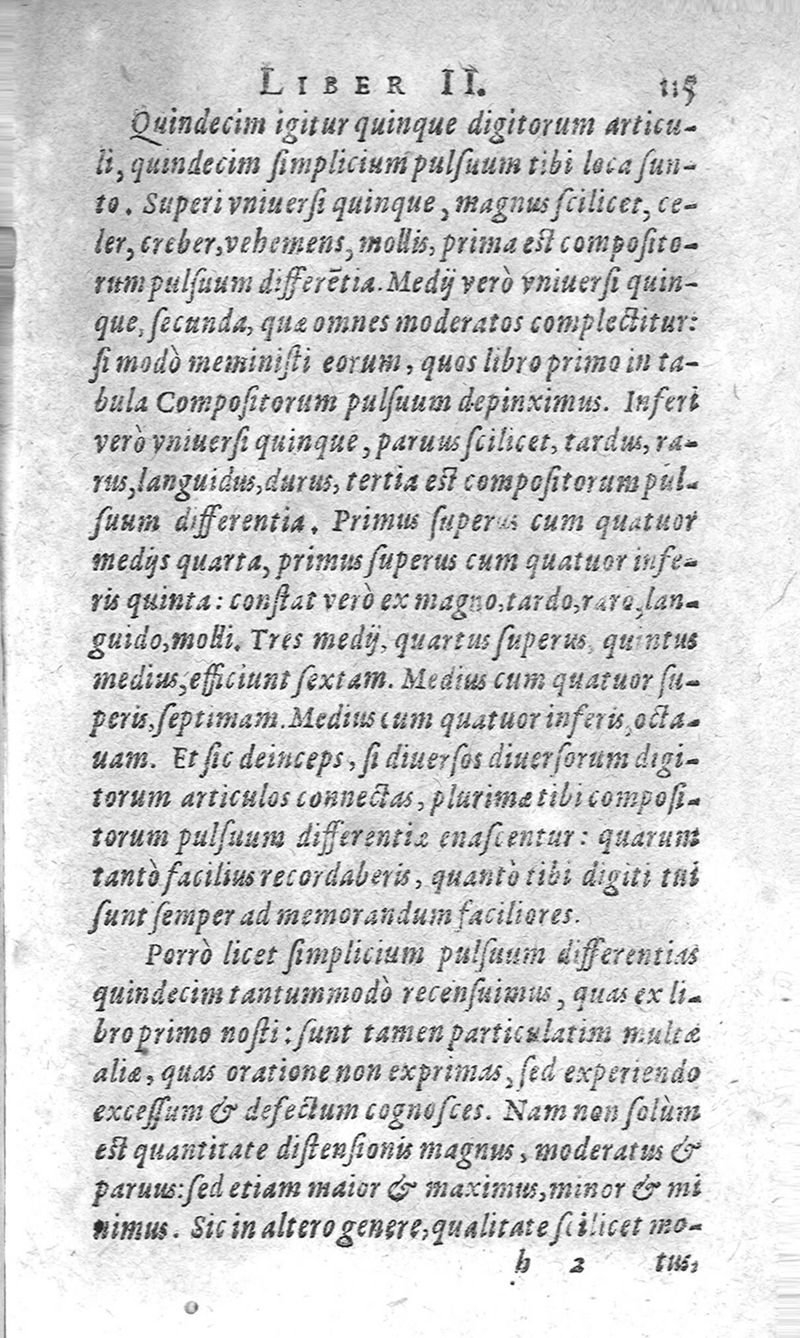 LIBER II. 115
Quindecim igitur quinque digitorum articu-
li, quindecim ſimplicium pulſuum tibi loca ſun-
to. Superi vniuerſi quinque, magnus ſcilicet, ce-
ler, creber, vehemens, mollis, prima est compoſito-
rum pulſuum differētia. Medij verò vniuerſi quin-
que, ſecunda, quæ omnes moderatos complectitur:
ſi modò meminiſti eorum, quos libro primo in ta-
bula Compoſitorum pulſuum depinximus. Inferi
verò vniuerſi quinque, paruus ſcilicet, tardus, ra-
rus, languidus, durus, tertia est compoſitorum pul-
ſuum differentia. Primus ſuperus cum quatuor
medijs quarta, primus ſuperus cum quatuor infe-
ris quinta: conſtat verò ex magno, tardo, raro, lan-
guido, molli. Tres medij, quartus ſuperus, quintus
medius, efficiunt ſextam. Medius cum quatuor ſu-
peris, ſeptimam. Medius cum quatuor inferis, octa-
uam. Et ſic deinceps, ſi diuerſos diuerſorum digi-
torum articulos connectas, plurimæ tibi compoſi-
torum pulſuum differentiæ enaſcentur: quarum
tantò facilius recordaberis, quantò tibi digiti tui
ſunt ſemper ad memorandum faciliores.
Porrò licet ſimplicium pulſuum differentias
quindecim tantummodò recenſuimus, quas ex li-
bro primo noſti: ſunt tamen particulatim multæ
aliæ, quas oratione non exprimas, ſed experiendo
exceſſum & defectum cognoſces. Nam non ſolùm
est quantitate diſtenſionis magnus, moderatus &
paruus: ſed etiam maior & maximus, minor & mi
nimus. Sic in altero genere, qualitate ſcilicet mo-
h 2 tus,